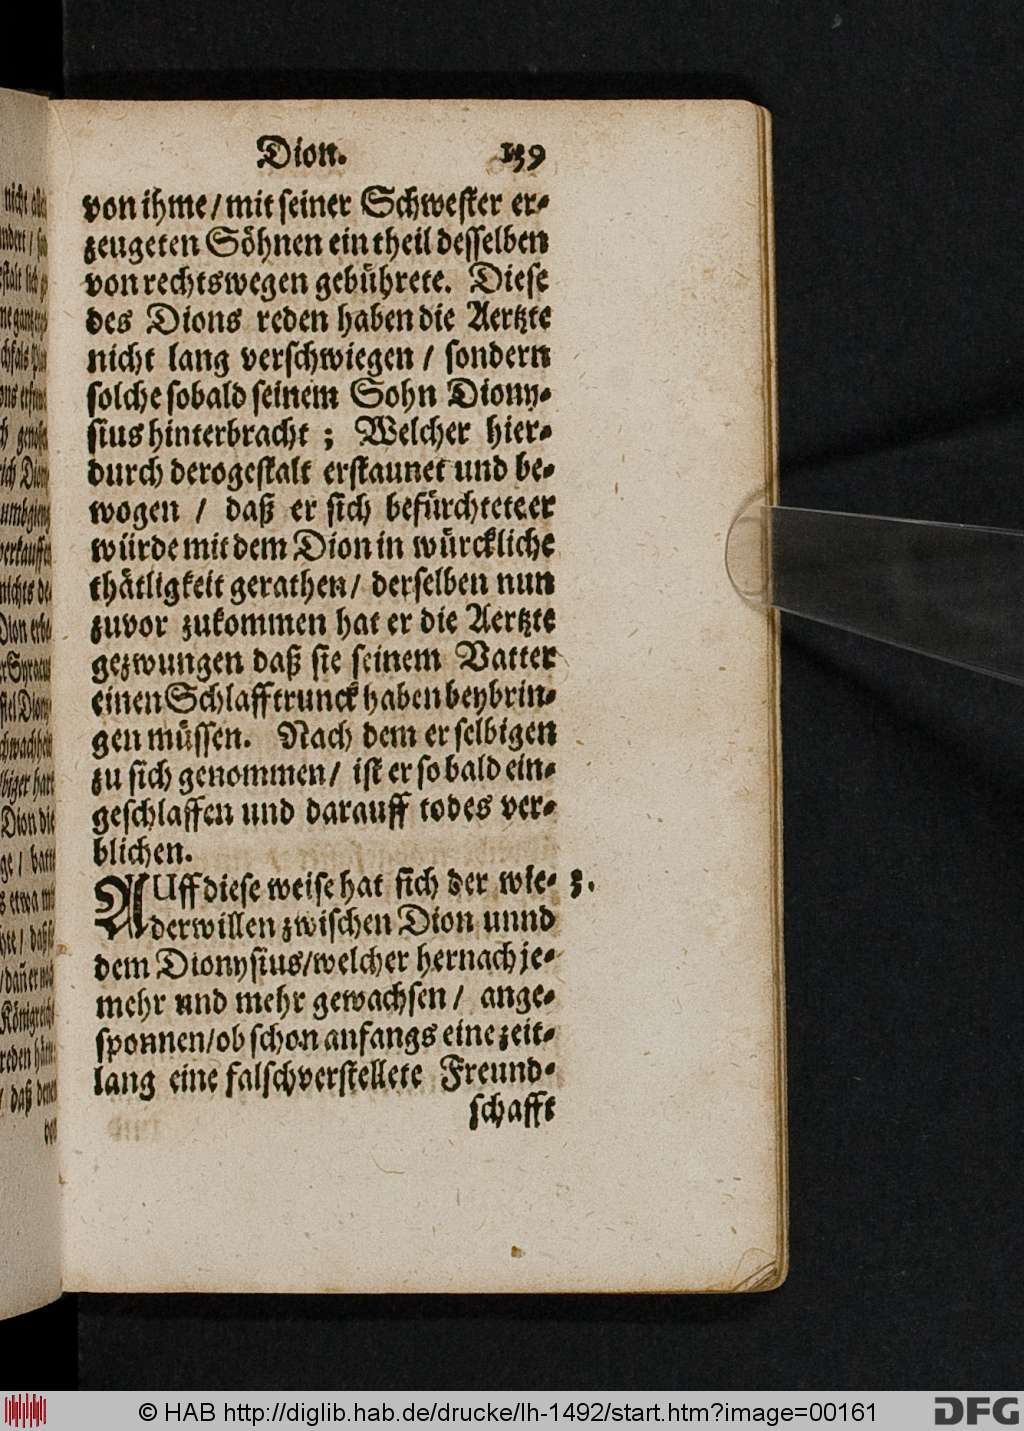 Dion. 159
von ihme / mit seiner Schwester er-
zeugeten Söhnen ein theil desselben
von rechtswegen gebührete. Diese
des Dions reden haben die Aertzte
nicht lang verschwiegen / sondern
solche sobald seinem Sohn Diony-
sius hinterbracht ; Welcher hier-
durch derogestalt erstaunet und be-
wogen / daß er sich befürchtete er
würde mit dem Dion in würckliche
thätligkeit gerathen / derselben nun
zuvor zukommen hat er die Aertzte
gezwungen daß sie seinem Vatter
einen Schlafftrunck haben beybrin-
gen müssen. Nach dem er selbigen
zu sich genommen / ist er so bald ein-
geschlaffen und darauff todes ver-
blichen.
AUff diese weise hat sich der wie- 3.
derwillen zwischen Dion unnd
dem Dionysius / welcher hernach je-
mehr und mehr gewachsen / ange-
sponnen / ob schon anfangs eine zeit-
lang eine falschverstellete Freund-
schafft
© HAB http://diglib.hab.de/drucke/lh-1492/start.htm?image=00161
DFG